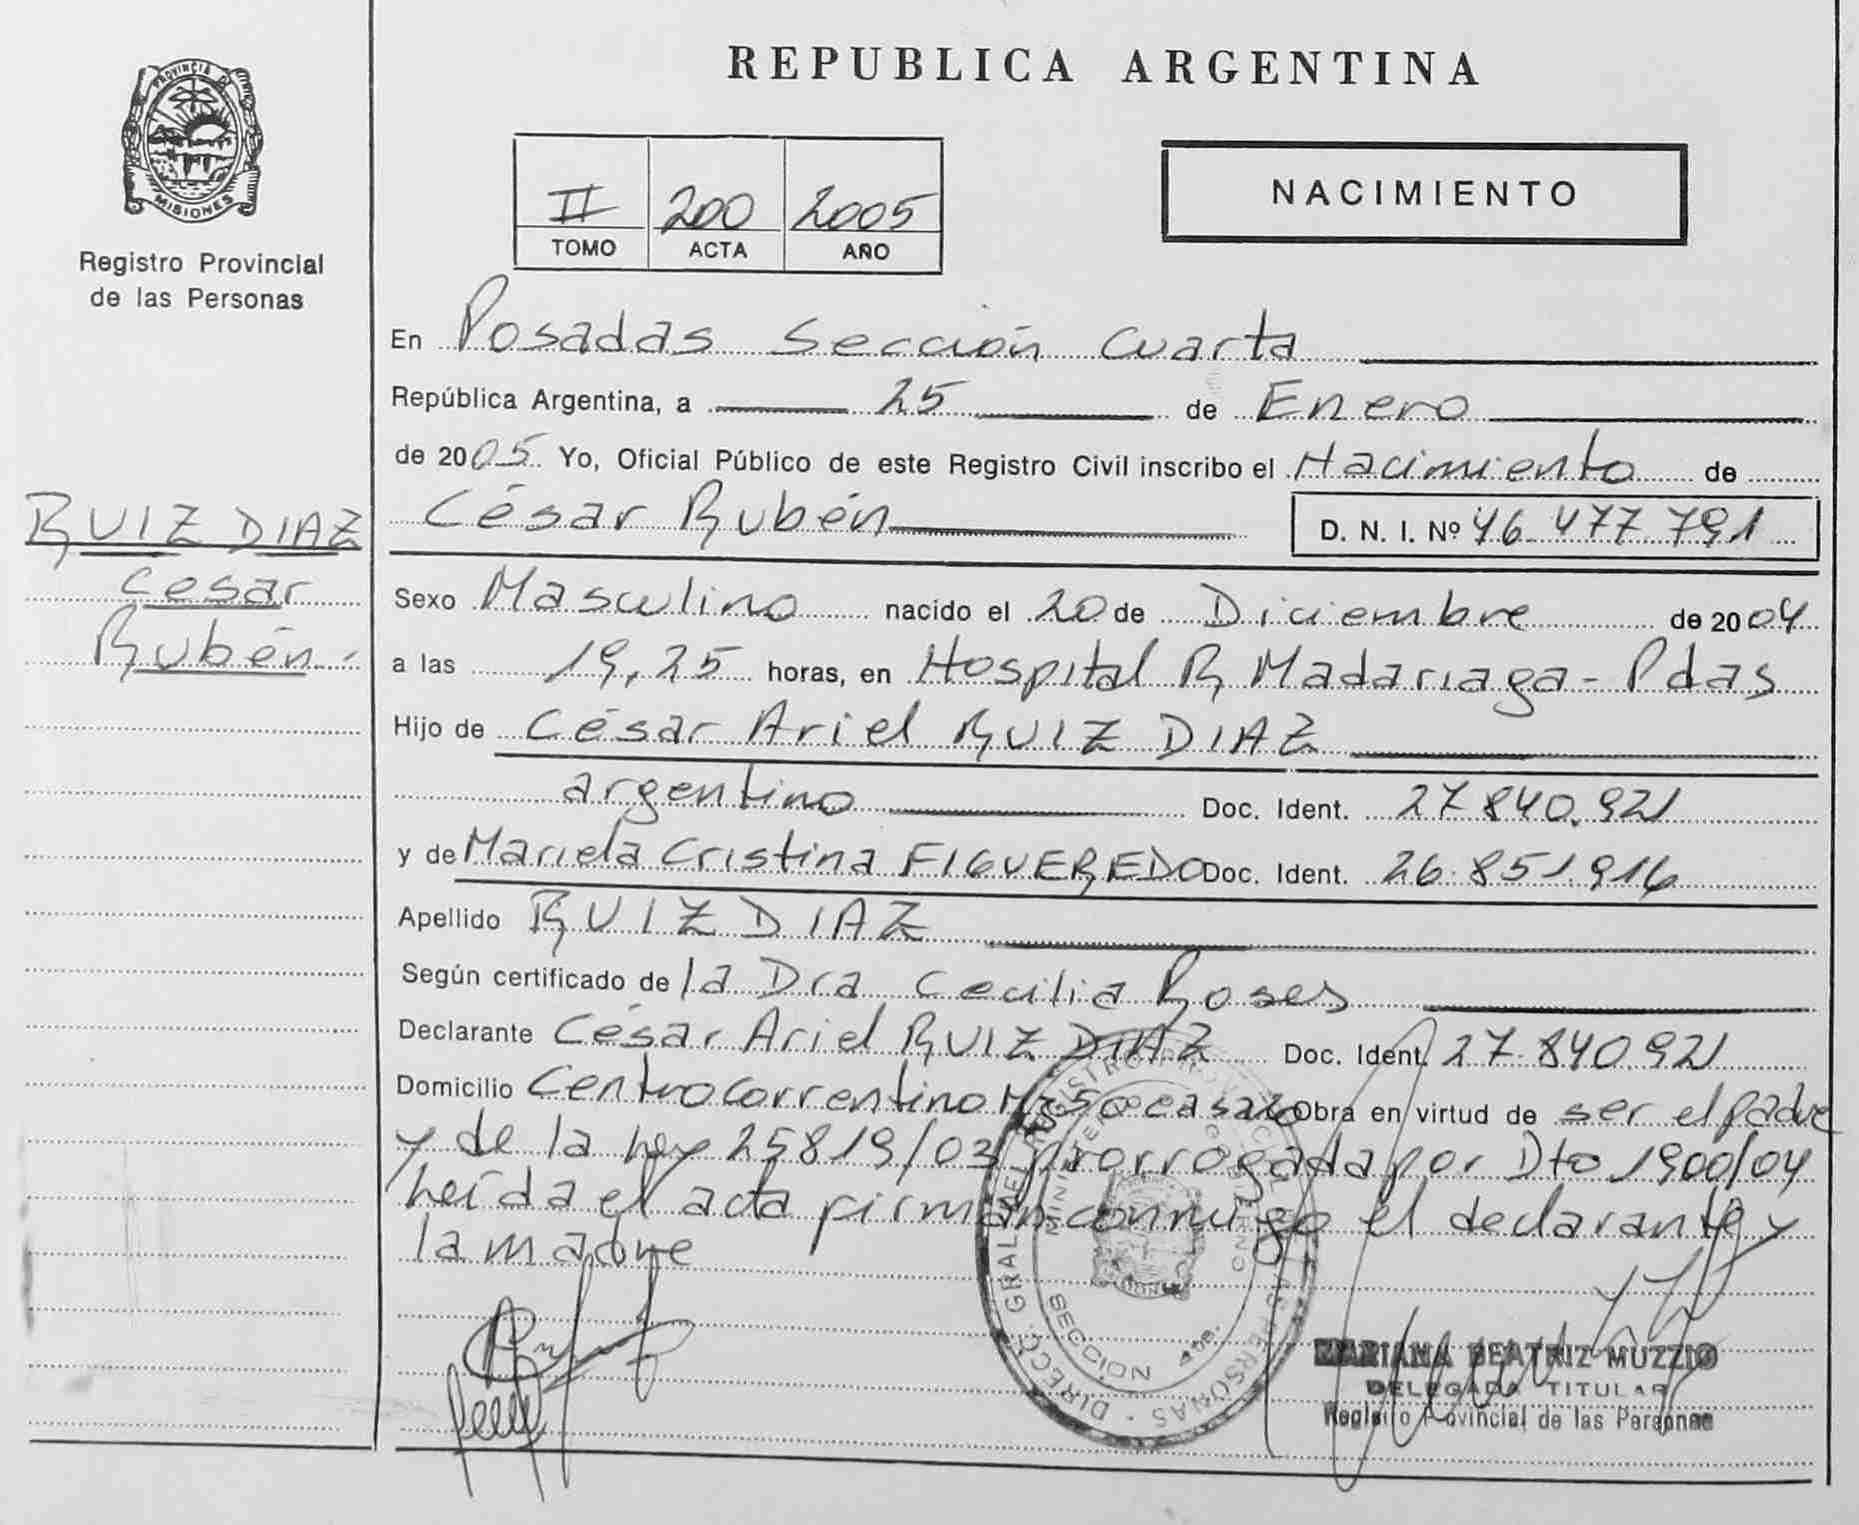 REPUBLICA ARGENTINA
PROVINCIA D
MISIONES
Registro Provincial
de las Personas
NACIMIENTO
II 200 2005
TOMO ACTA AÑO
En Posadas Sección Cuarta
República Argentina, a 25 de Enero
de 2005. Yo, Oficial Público de este Registro Civil inscribo el Nacimiento de
César Rubén D. N. I. Nº 46 477 791
RUIZ DIAZ
César
Rubén.
Sexo Masculino nacido el 20 de Diciembre de 2004
a las 19,25 horas, en Hospital R Madariaga - Pdas
Hijo de César Ariel RUIZ DIAZ
argentino Doc. Ident. 27 840.921
y de Mariela Cristina FIGUEREDO Doc. Ident. 26.851.916
Apellido RUIZ DIAZ
Según certificado de la Dra Cecilia Roses
Declarante César Ariel RUIZ DIAZ Doc. Ident. 27.840.921
Domicilio Centro Correntino Mz 50 casa Obra en virtud de ser el padre
y de la Ley 25819/03 prorrogada por Dto 1900/04
Leída el acta firman conmigo el declarante y
la madre
DIRECC. GRAL. DEL REGISTRO PROVINCIAL DE LAS PERSONAS
MINISTERIO GOBIERNO
SECCION 4ta.
MARIANA BEATRIZ MUZZIO
DELEGADA TITULAR
Registro Provincial de las Personas